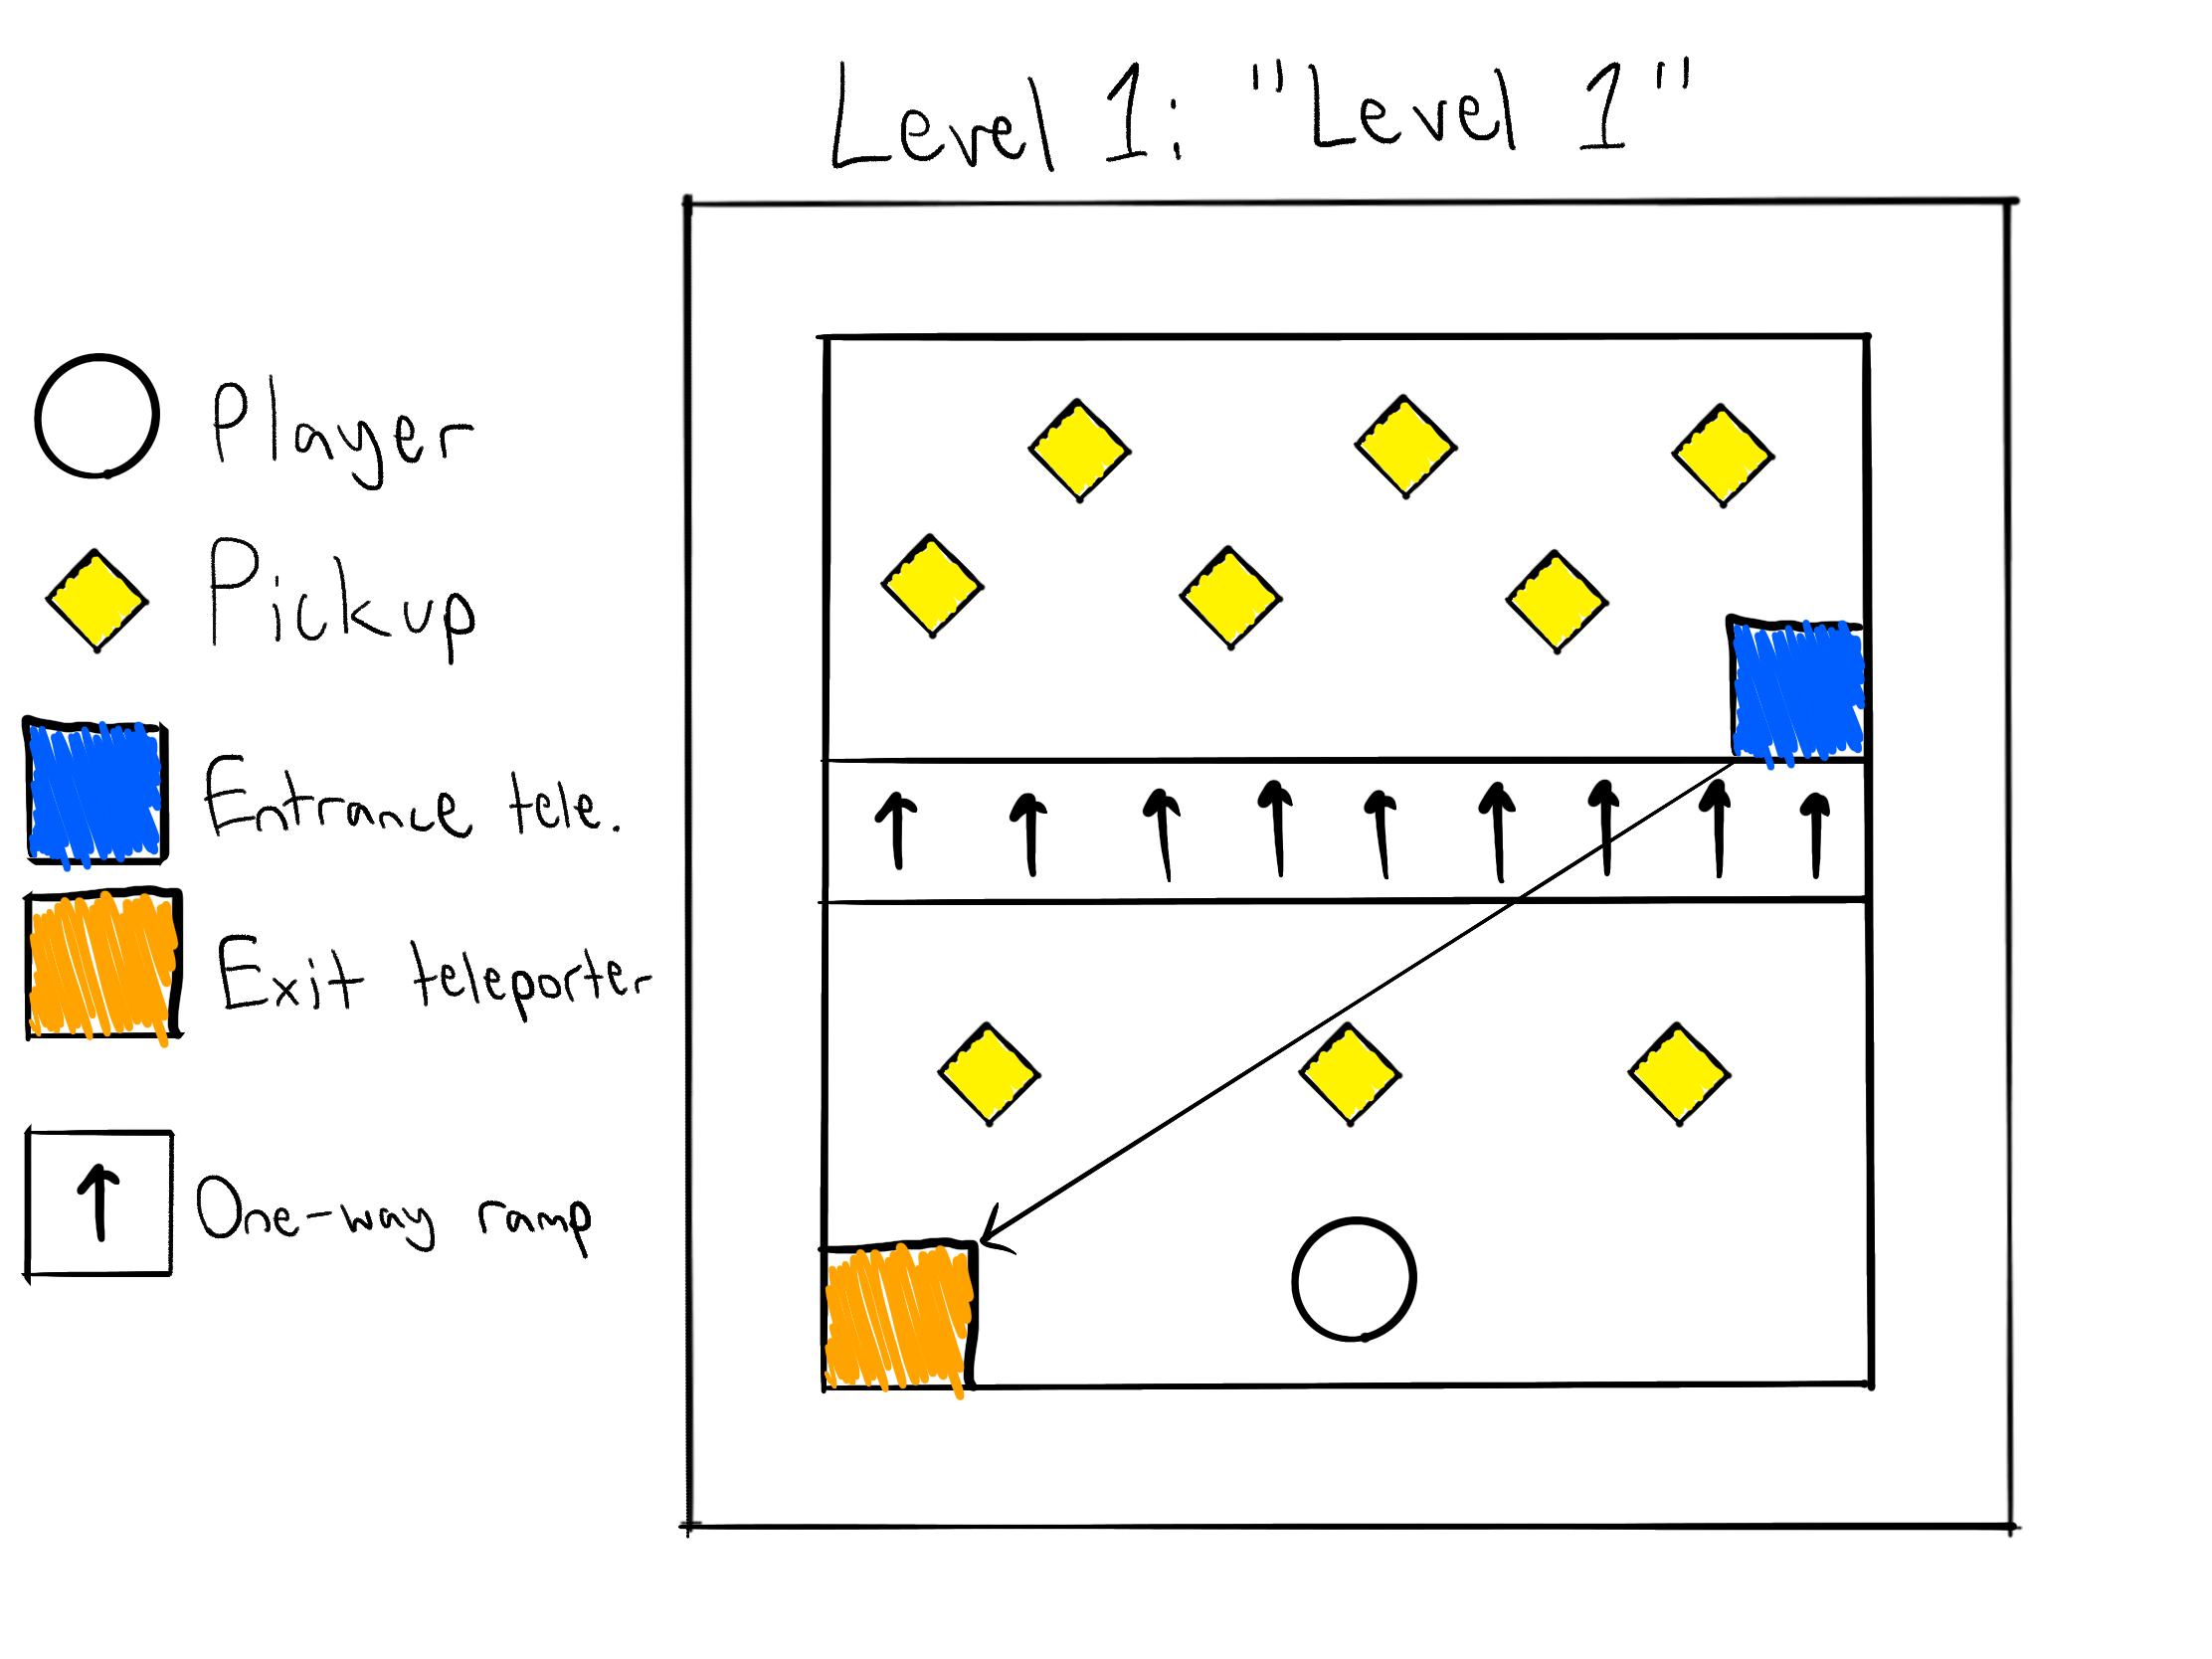 Level 1: "Level 1"
Player
Pickup
Entrance tele.
Exit teleporter
One-way ramp